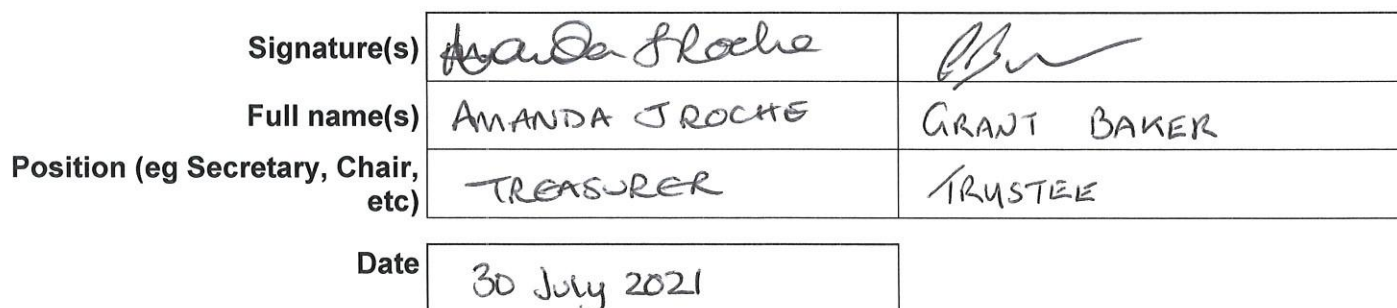 Signature(s) Amanda J Roche
Full name(s) AMANDA J ROCHE GRANT BAKER
Position (eg Secretary, Chair, TREASURER TRUSTEE
etc)
Date 30 July 2021